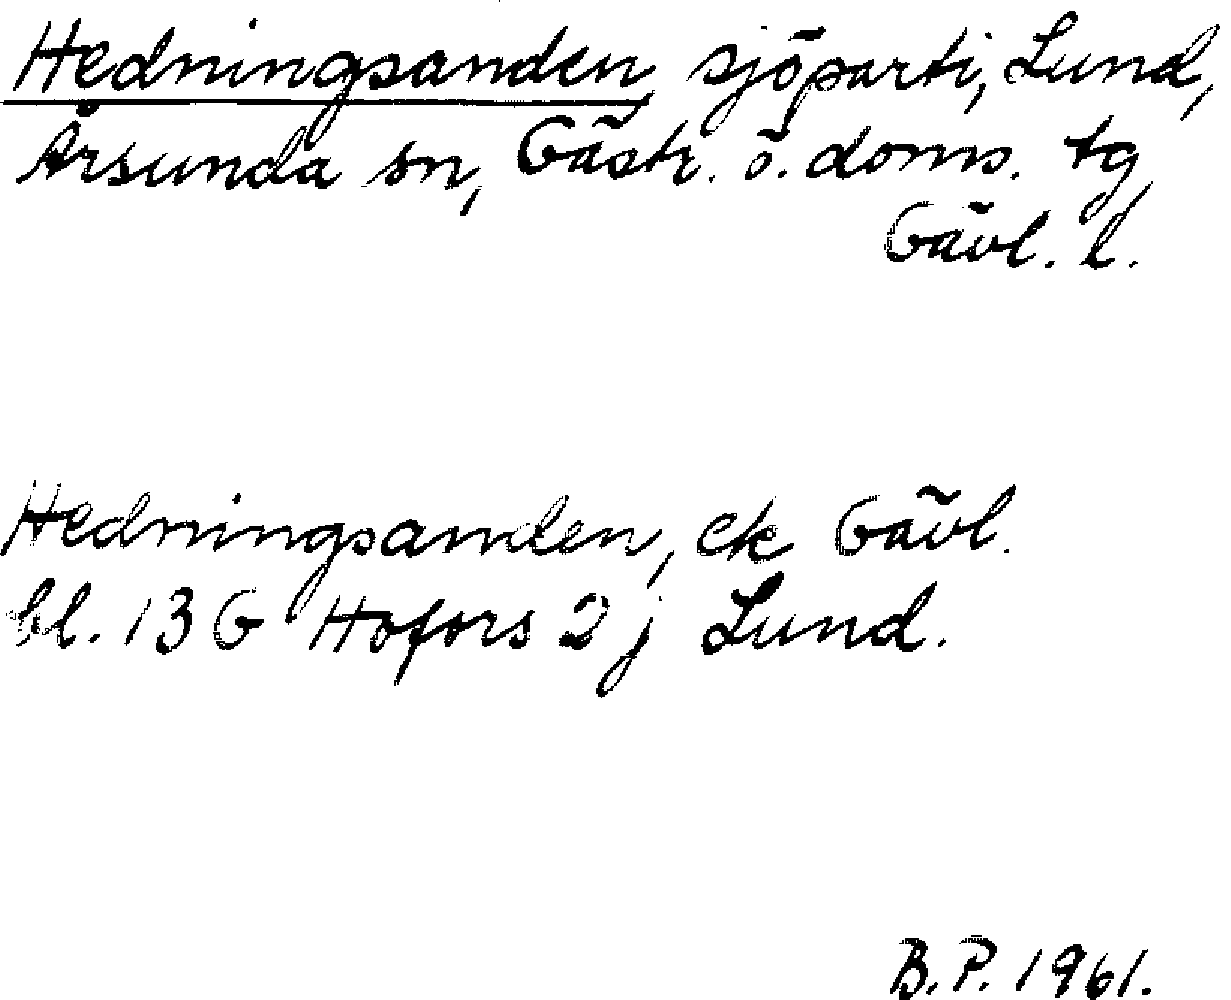 Hedningsanden, sjöparti, Lund,
Årsunda sn, Gästr. ö. doms. tg,
Gävl. l.
Hedningsanden, ek Gävl.
bl. 13 G Hofors 2 j Lund.
B.P. 1961.